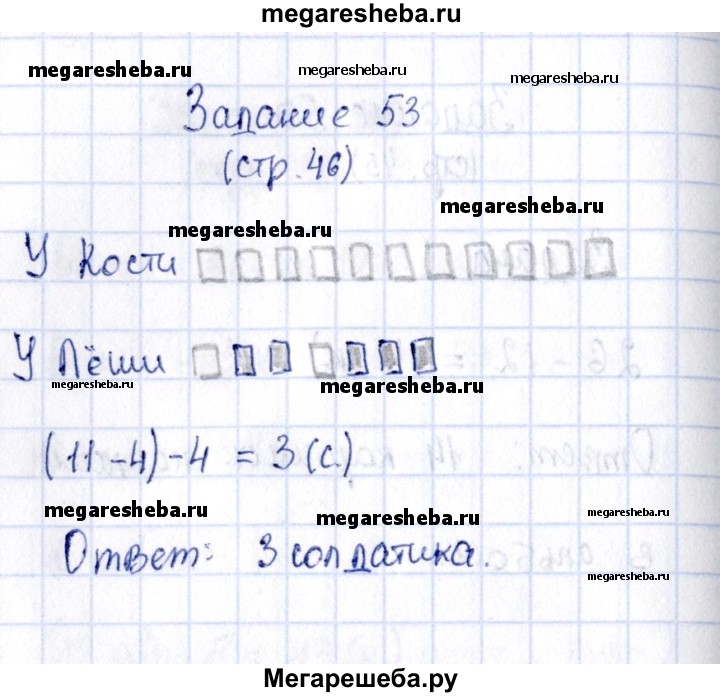 megaresheba.ru
megaresheba.ru megaresheba.ru megaresheba.ru
Задание 53
(стр. 46)
megaresheba.ru
megaresheba.ru
У Кости
У Лёши
megaresheba.ru megaresheba.ru
(11-4)-4 = 3 (с.)
megaresheba.ru megaresheba.ru megaresheba.ru
Ответ: 3 солдатика.
megaresheba.ru
Мегарешеба.ру